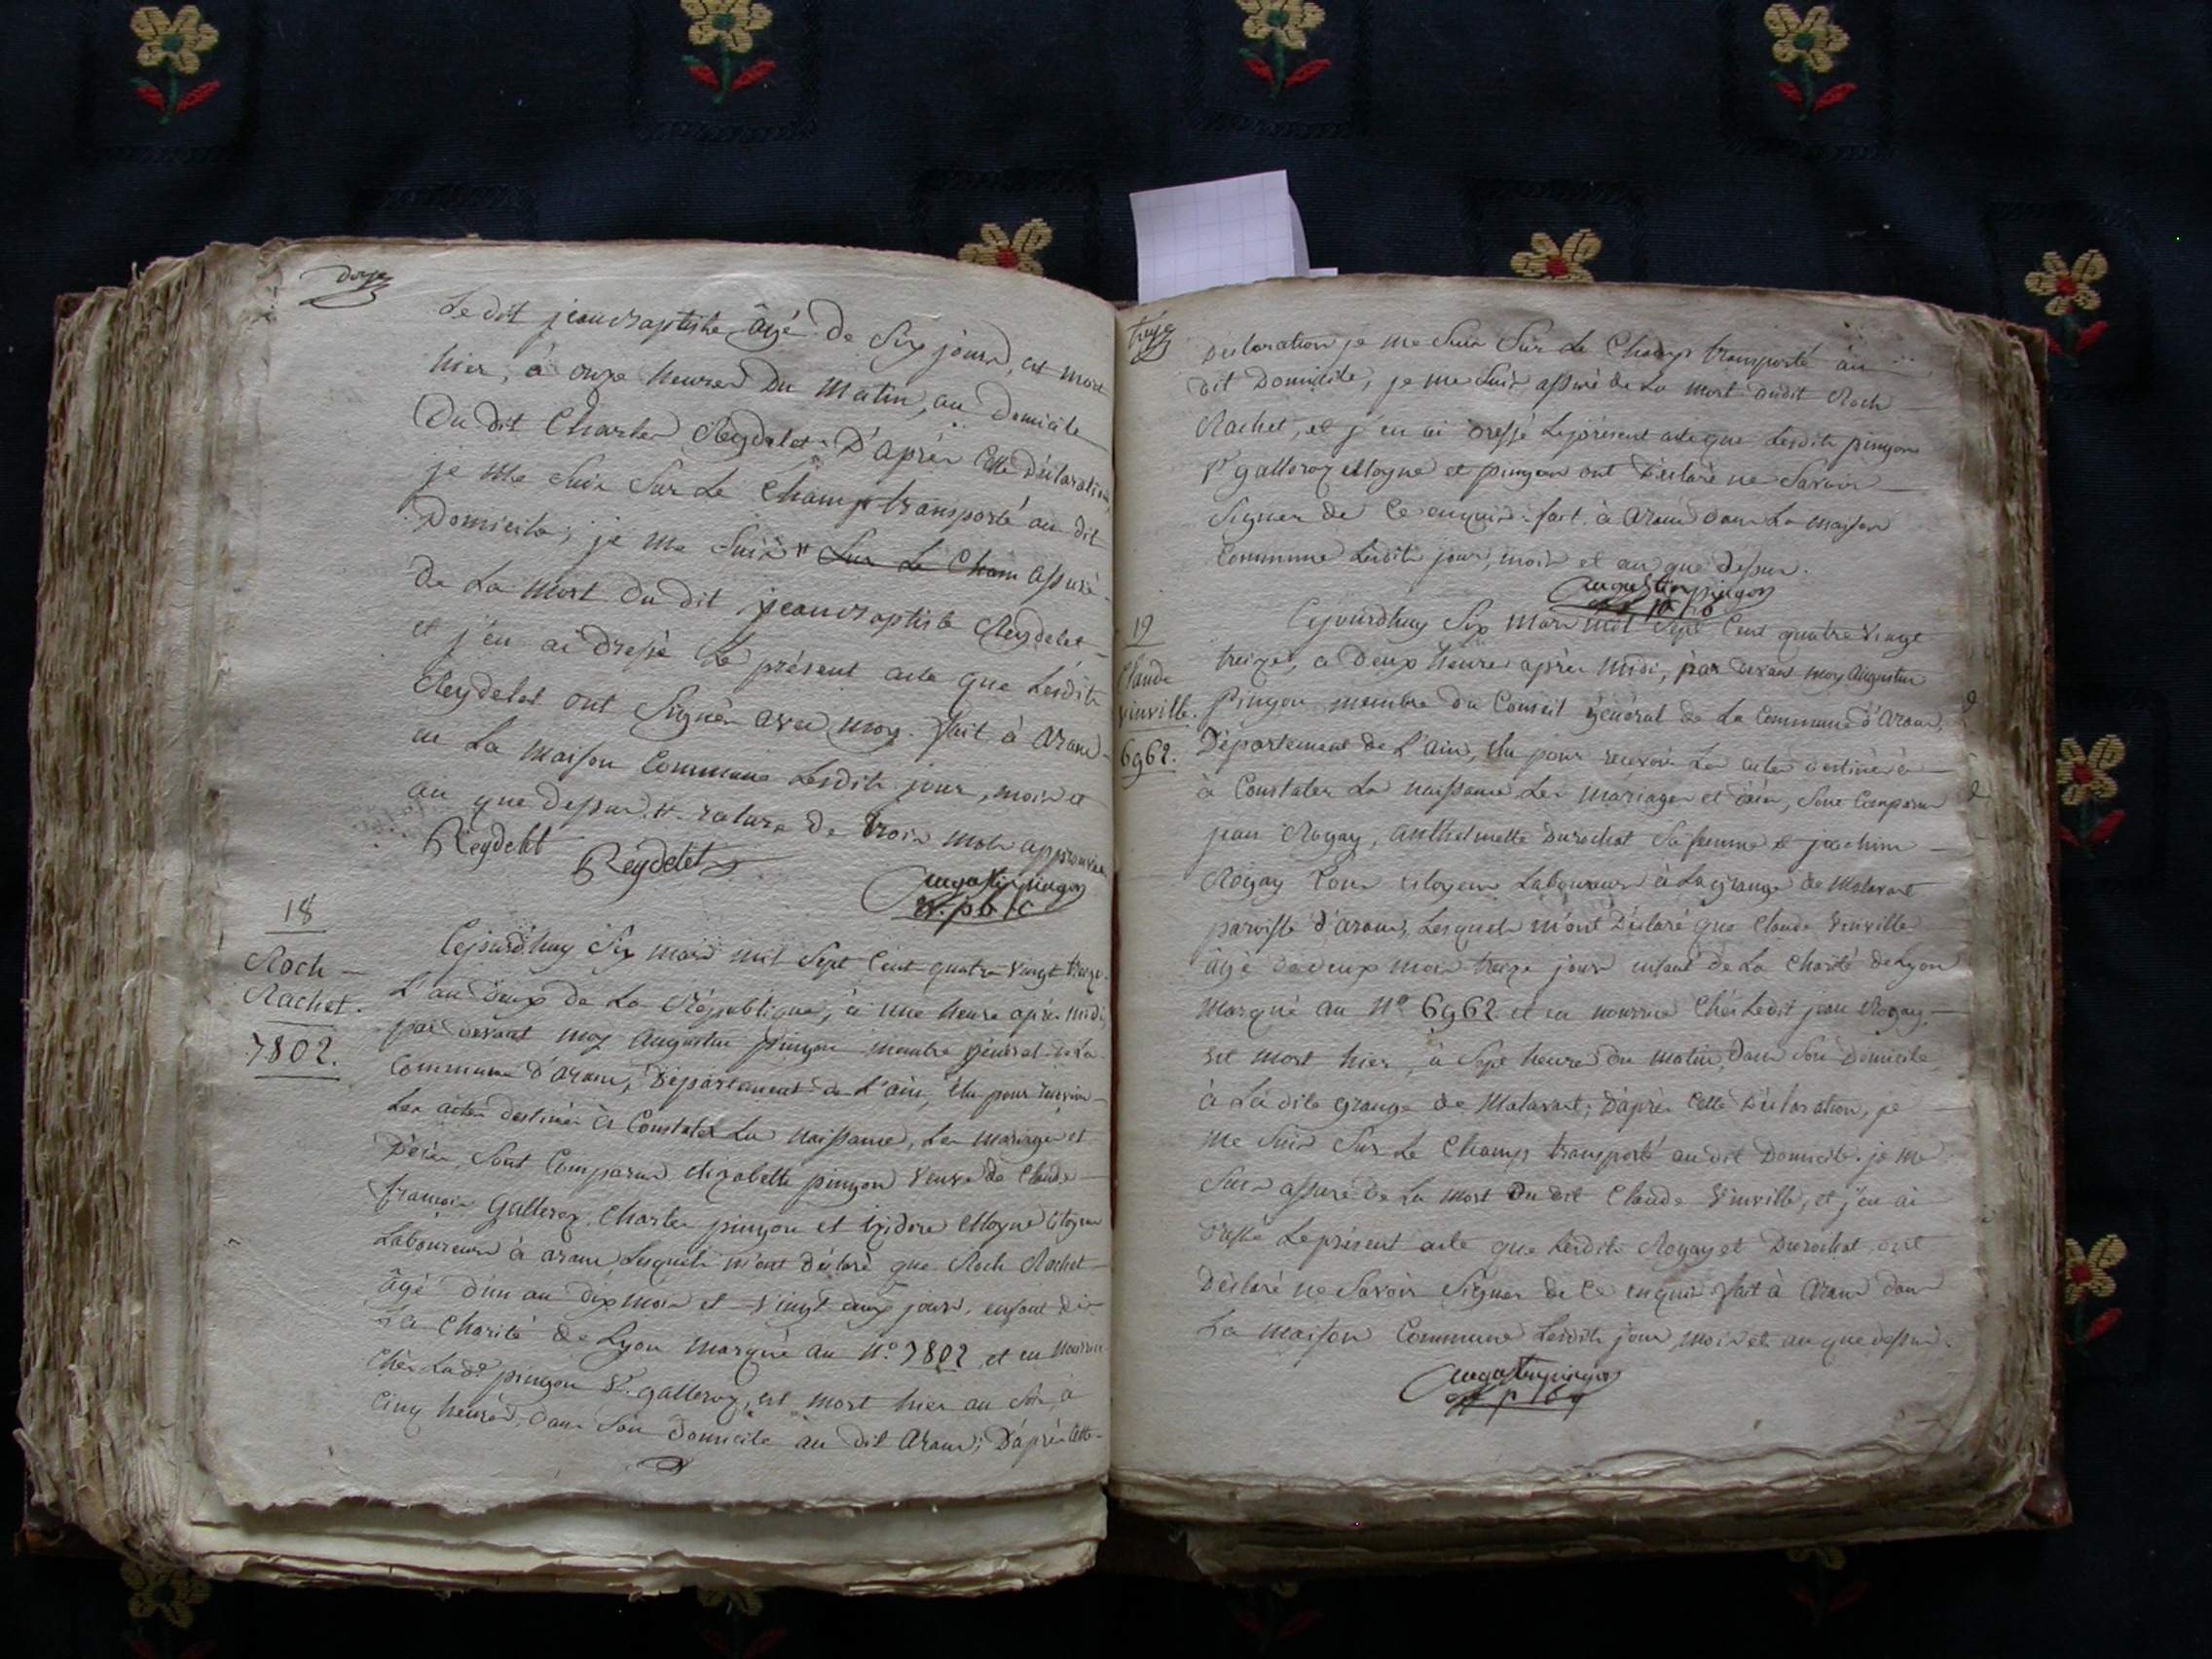 douze
Le dit jean Baptiste âgé de Six jours, est mort
hier, à onze heures Du Matin, au Domicile
Du dit Charles Reydelet. D'après Cette Déclaration
je me Suis Sur Le Champ transporté au dit
Domicile; je me Suis # Sur Le Cham assuré
De La Mort Du dit jean Baptiste Reydelet
et j'en ai Dressé Le présent acte que Lesdits
Reydelet ont Signés avec moy. fait à Aranc
en La Maison Commune Lesdits jour, mois et
an que Dessus. #. rature De trois mots approuvée
Reydelet Reydelet
augustin pingon
18
Roch
Rachet.
7802.
Cejourd'huy Six mars mil Sept Cent quatre vingt treize
L'an Deux de La République, à une heure après midi
par devant moy Augustin pingon membre général de la
Commune d'Aranc, Département de L'ain, élu pour recevoir
Les actes destinés à Constater La Naissance, Les mariages et
Décès, Sont Comparus elizabette pingon veuve de Claude
françois Galleroz, Charles pingon et izidore Moyne Citoyens
Laboureurs à aranc Lesquels m'ont déclaré que Roch Rachet
âgé d'un an dix mois et vingt deux jours, enfant de
La Charité de Lyon marqué au N.º 7802 et en nourrice
Chés Lad.e pingon V.e galleroz, est mort hier au Soir, à
Cinq heures, dans Son Domicile au dit Aranc; D'après Cette
treize
Déclaration je me Suis Sur Le Champ transporté au
dit Domicile, je me Suis assuré de La mort dudit Roch
Rachet, et j'en ai dressé Le présent acte que Lesdits pingon
V.e galleroz Moyne et pingon ont Déclaré ne Savoir
Signer de Ce enquis. fait à Aranc dans La maison
Commune Lesdits jour, mois et an que dessus.
augustin pingon
19
Claude
Vinville.
6962.
Cejourd'huy Six Mars mil Sept Cent quatre vingt
treize, a Deux heures après Midi, par devant moy Augustin
Pingon membre du Conseil général de La Commune d'Aranc,
Département de L'ain, élu pour recevoir Les actes destinés à
à Constater La naissance Les mariages et décès, Sont Comparus
jean Rogay, Anthelmette Durochat Sa femme et joachim
Rogay tous Citoyens Laboureurs à La grange de Malavart
paroisse d'aranc, Lesquels m'ont Déclaré que Claude Vinville
âgé de deux mois treize jours enfant de La Charité de Lyon
Marqué au N.º 6962 et en nourrice Chés Ledit jean Rogay
est mort hier, à Sept heures du matin, dans Son Domicile
à La dite grange de Malavart; D'après Cette Déclaration, je
me Suis Sur Le Champ transporté au dit Domicile. je me
Suis assuré de La mort Du dit Claude Vinville, et j'en ai
Dressé Le présent acte que Lesdits Rogay et Durochat ont
Déclaré ne Savoir Signer de Ce enquis. fait à Aranc dans
La Maison Commune Lesdits jour, mois et an que dessus.
augustin pingon